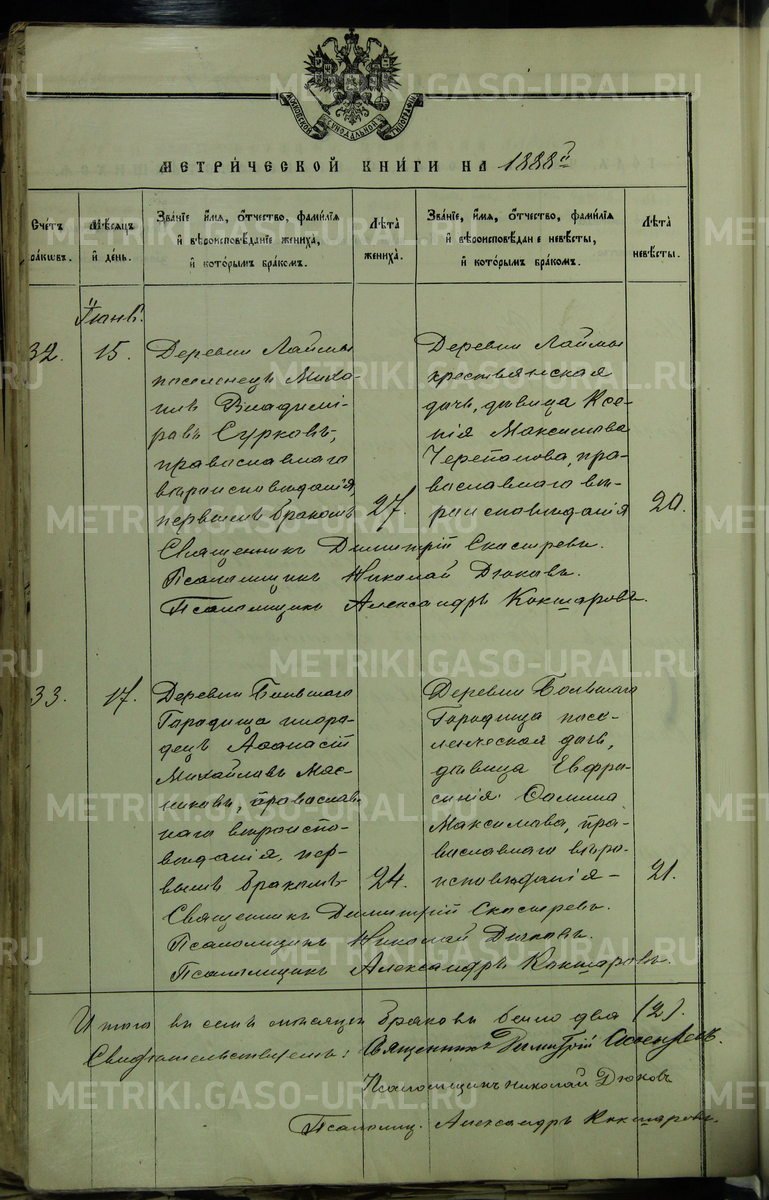 METRIKI.GASO-URAL.RU
МОСКОВСКОЙ СѴНОДАЛЬНОЙ ТИПОГРАФІИ
МЕТРИ́ЧЕСКОЙ КНИ́ГИ НА 1888й
Сче́тъ бра́ковъ.
Мѣ́сяцъ и҆ де́нь.
Зва́нїе и҆́мя, ѻ҆́тчество, фами́лїя и҆ вѣроисповѣ́данїе жениха̀, и҆ кото́рымъ бра́комъ.
Лѣ́та жениха̀.
Зва́нїе, и҆́мя, ѻ҆́тчество, фами́лїя и҆ вѣроисповѣ́данїе невѣ́сты, и҆ кото́рымъ бра́комъ.
Лѣ́та невѣ́сты.
32. 15.
Деревни Лаймы
поселенецъ Миха-
илъ Владимі-
ровъ Сурковъ,
православнаго
вѣроисповѣданія,
первымъ бракомъ
27.
Деревни Лаймы
крестьянская
дочь, дѣвица Ксе-
нія Максимова
Черепанова, пра-
вославнаго вѣ-
роисповѣданія
20.
Священникъ Димитрій Скосыревъ.
Псаломщикъ Николай Дюковъ.
Псаломщикъ Александръ Кокшаровъ.
33. 17.
Деревни Большаго
Городища инора-
децъ Аѳанасій
Михайловъ Мас-
никовъ, православ-
наго вѣроиспо-
вѣданія, пер-
вымъ бракомъ
24.
Деревни Большаго
Городища посе-
ленческая дочь,
дѣвица Евфро-
синія
Максимова, пра-
вославнаго вѣро-
исповѣданія
21.
Священникъ Димитрій Скосыревъ.
Псаломщикъ Николай Дюковъ.
Псаломщикъ Александръ Кокшаровъ.
Итого въ семъ мѣсяцѣ браковъ было два (2).
Свидѣтельствуемъ: Священникъ Димитрій Скосыревъ.
Псаломщикъ Николай Дюковъ
Псаломщ. Александръ Кокшаровъ.